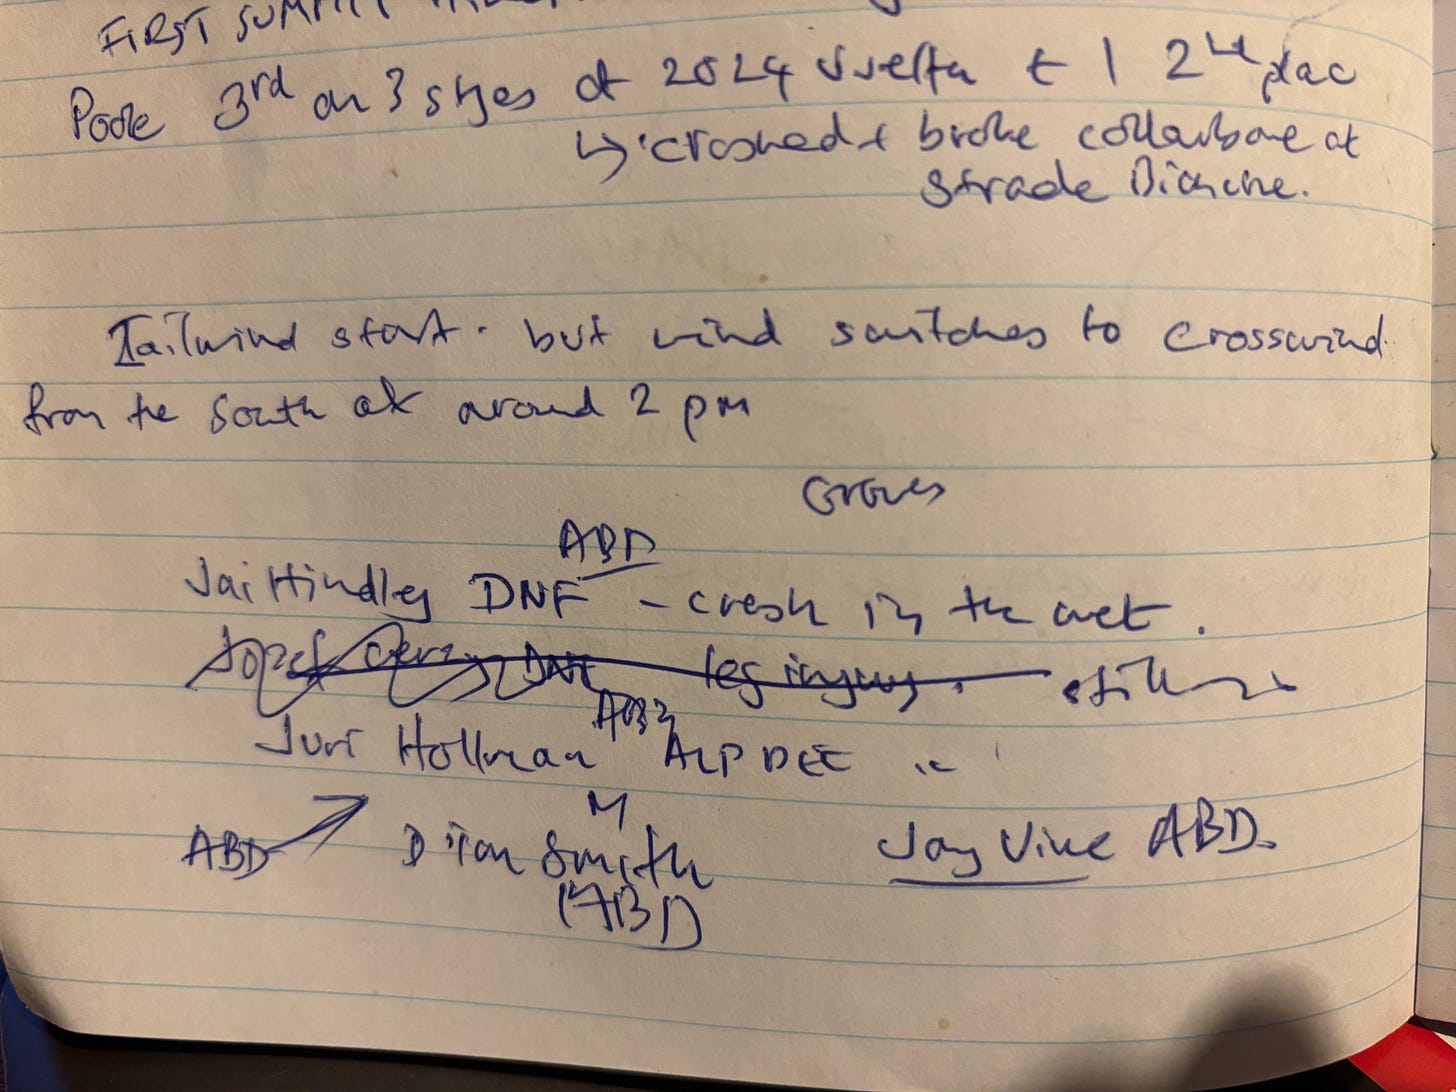 FIRST SUMMIT
Poole 3rd on 3 stges at 2024 Vuelta + 1 2nd plac
↳ crashed + broke collarbone at
Strade Bianche.
Tailwind start. but wind switches to crosswind
from the South at around 2 pm
Groves
ABD
Jai Hindley DNF - crash in the wet.
DNF leg injury.
Juri Hollman ALP DEC
M
ABD Dion Smith Jay Vine ABD.
(ABD)